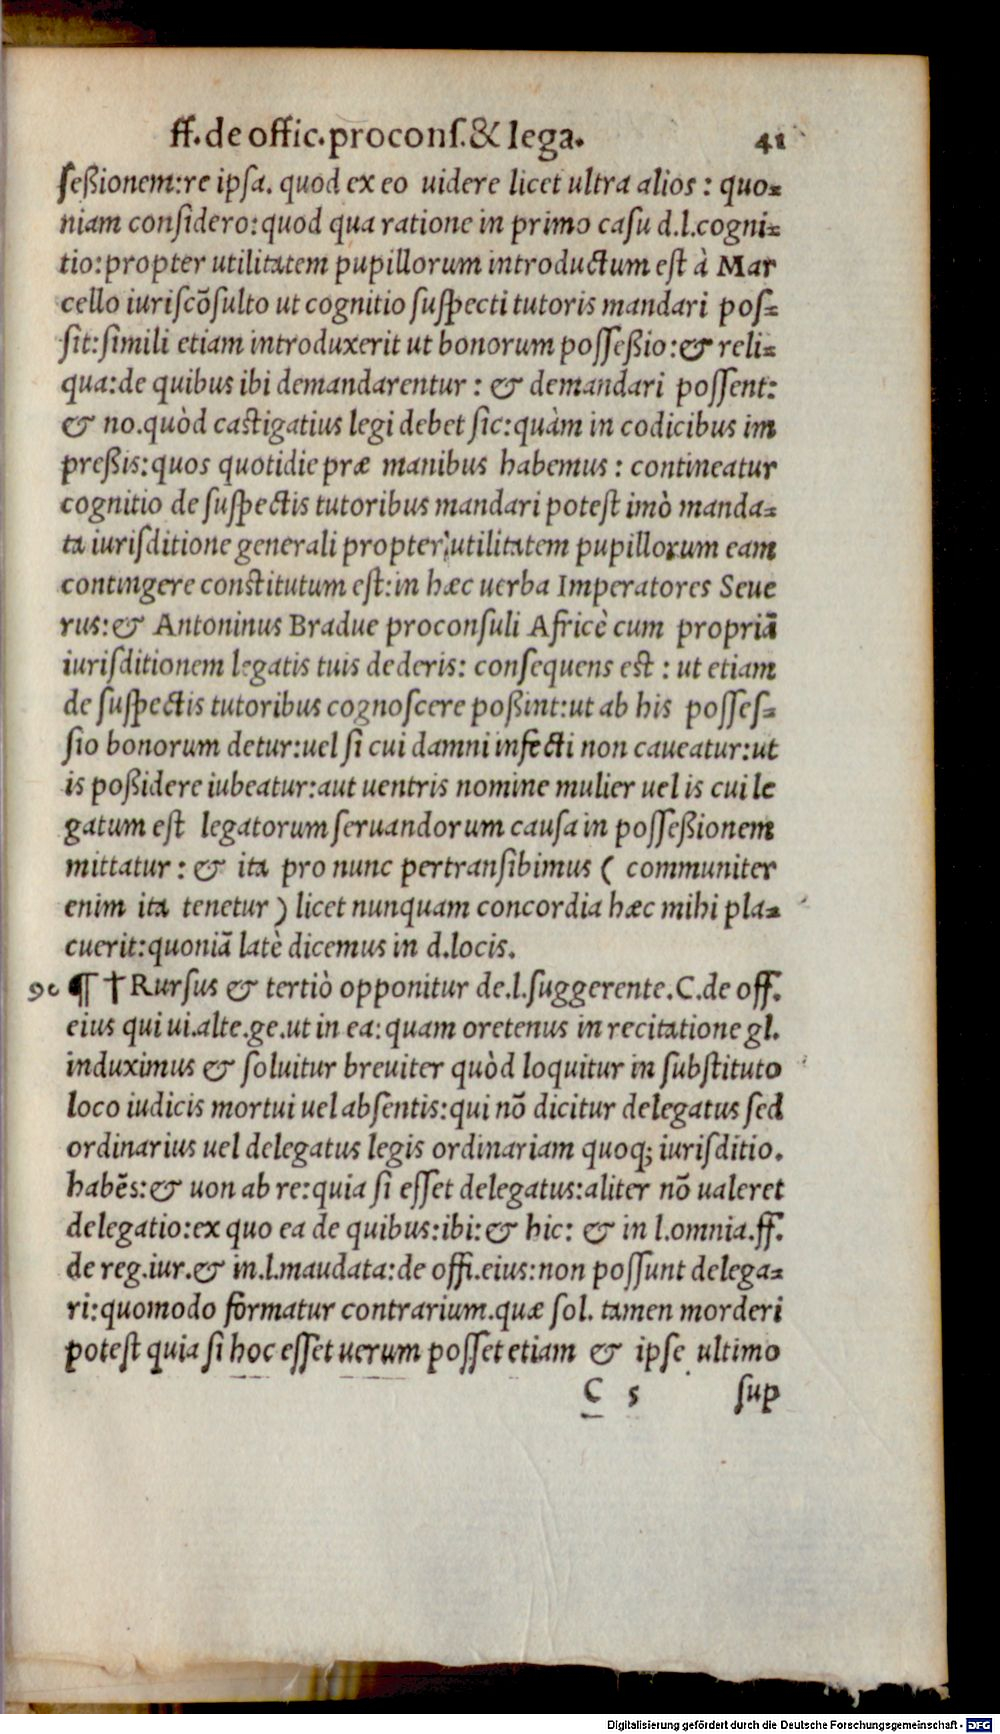 ff.de offic.proconſ.& lega. 41
ſeßionem:re ipſa. quod ex eo uidere licet ultra alios : quo-
niam conſidero:quod qua ratione in primo caſu d.l.cogni-
tio:propter utilitatem pupillorum introductum eſt à Mar
cello iuriſcõſulto ut cognitio ſuſpecti tutoris mandari poſ-
ſit:ſimili etiam introduxerit ut bonorum poſſeßio:& reli-
qua:de quibus ibi demandarentur : & demandari poſſent:
& no.quòd caſtigatius legi debet ſic:quàm in codicibus im
preßis:quos quotidie præ manibus habemus : contineatur
cognitio de ſuſpectis tutoribus mandari poteſt imò manda-
ta iuriſditione generali propter utilitatem pupillorum eam
contingere conſtitutum eſt:in hæc uerba Imperatores Seue
rus:& Antoninus Bradue proconſuli Africè cum propriã
iuriſditionem legatis tuis dederis: conſequens est : ut etiam
de ſuſpectis tutoribus cognoſcere poßint:ut ab his poſſeſ-
ſio bonorum detur:uel ſi cui damni infecti non caueatur:ut
is poßidere iubeatur:aut uentris nomine mulier uel is cui le
gatum eſt legatorum ſeruandorum cauſa in poſſeßionem
mittatur : & ita pro nunc pertranſibimus ( communiter
enim ita tenetur ) licet nunquam concordia hæc mihi pla-
cuerit:quoniã latè dicemus in d.locis.
90 ¶ † Rurſus & tertiò opponitur de.l.ſuggerente.C.de off.
eius qui ui.alte.ge.ut in ea:quam oretenus in recitatione gl.
induximus & ſoluitur breuiter quòd loquitur in ſubſtituto
loco iudicis mortui uel abſentis:qui nõ dicitur delegatus ſed
ordinarius uel delegatus legis ordinariam quoq; iuriſditio.
habẽs:& uon ab re:quia ſi eſſet delegatus:aliter nõ ualeret
delegatio:ex quo ea de quibus:ibi:& hic: & in l.omnia.ff.
de reg.iur.& in.l.maudata:de offi.eius:non poſſunt delega-
ri:quomodo formatur contrarium.quæ ſol. tamen morderi
poteſt quia ſi hoc eſſet uerum poſſet etiam & ipſe ultimo
C 5 ſup
Digitalisierung gefördert durch die Deutsche Forschungsgemeinschaft - DFG